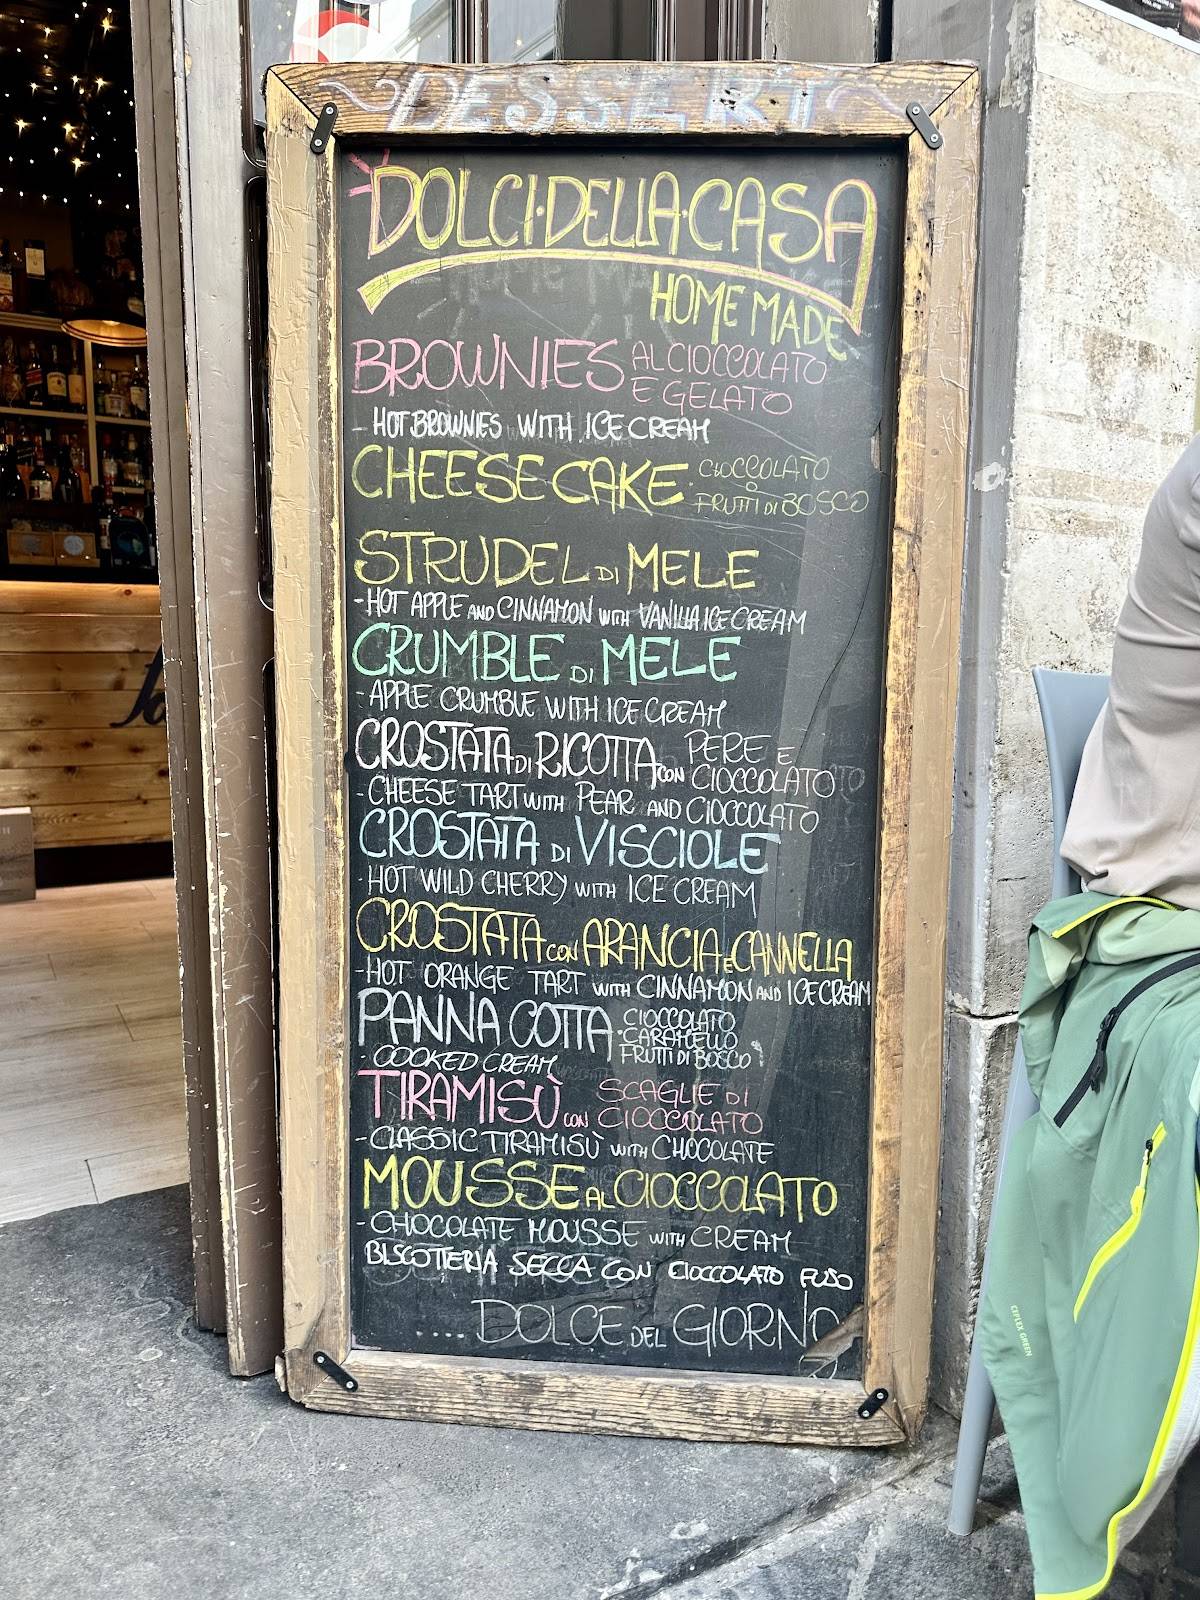 DESSERT
DOLCI·DELLA·CASA
HOME MADE
BROWNIES AL CIOCCOLATO
E GELATO
- HOT BROWNIES WITH ICE CREAM
CHEESE CAKE CIOCCOLATO
O
FRUTTI DI BOSCO
STRUDEL DI MELE
- HOT APPLE AND CINNAMON WITH VANILLA ICE CREAM
CRUMBLE DI MELE
- APPLE CRUMBLE WITH ICE CREAM
CROSTATA DI RICOTTA CON PERE E
CIOCCOLATO
- CHEESE TART WITH PEAR AND CIOCCOLATO
CROSTATA DI VISCIOLE
- HOT WILD CHERRY WITH ICE CREAM
CROSTATA CON ARANCIA E CANNELLA
- HOT ORANGE TART WITH CINNAMON AND ICE CREAM
PANNA COTTA · CIOCCOLATO
· CARAMELLO
FRUTTI DI BOSCO
- COOKED CREAM
TIRAMISÙ CON SCAGLIE DI
CIOCCOLATO
- CLASSIC TIRAMISÙ WITH CHOCOLATE
MOUSSE AL CIOCCOLATO
- CHOCOLATE MOUSSE WITH CREAM
BISCOTTERIA SECCA CON CIOCCOLATO FUSO
.... DOLCE DEL GIORNO
CEPLEX GREEN